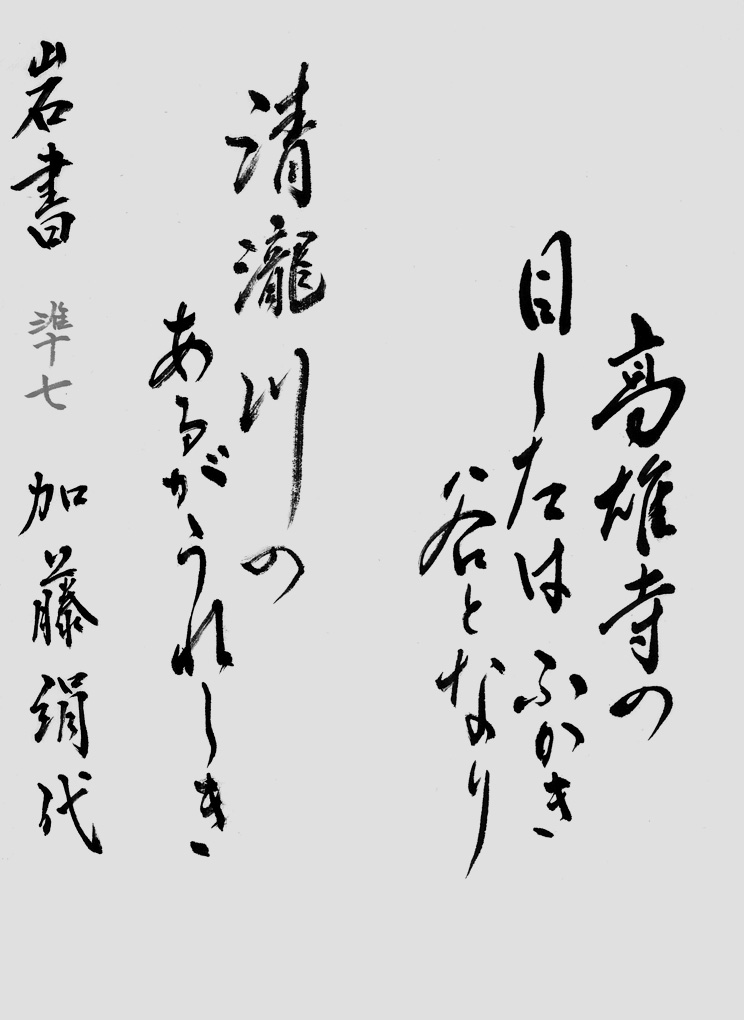 高雄寺の
目したはふかき
谷となり
清瀧川の
あるがうれしき
岩書 準十七 加藤絹代